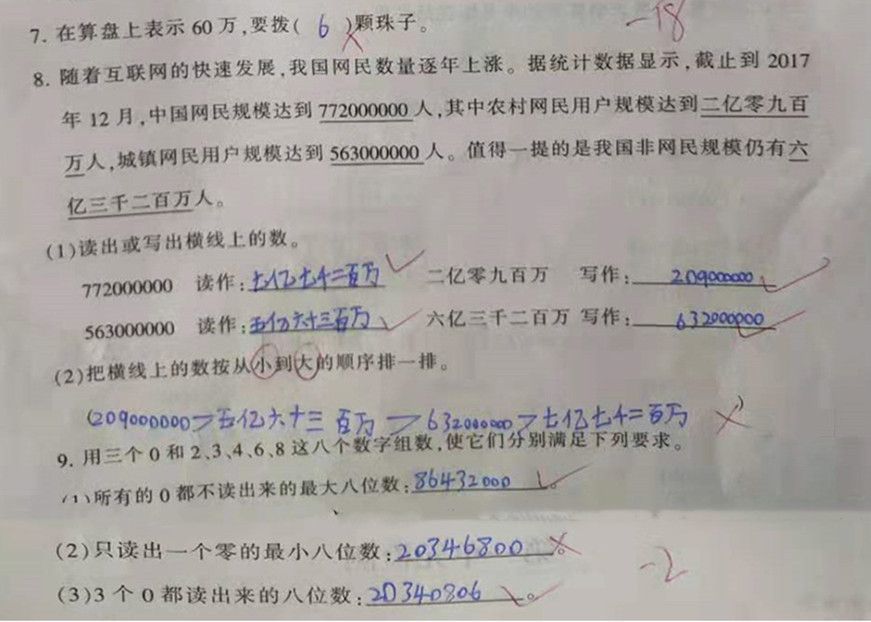 7. 在算盘上表示 60 万,要拨( 6 )颗珠子。
-18
8. 随着互联网的快速发展,我国网民数量逐年上涨。据统计数据显示,截止到 2017
年 12 月,中国网民规模达到 772000000 人,其中农村网民用户规模达到二亿零九百
万人,城镇网民用户规模达到 563000000 人。值得一提的是我国非网民规模仍有六
亿三千二百万人。
(1)读出或写出横线上的数。
772000000 读作:七亿七千二百万 二亿零九百万 写作:209000000
563000000 读作:五亿六千三百万 六亿三千二百万 写作:632000000
(2)把横线上的数按从小到大的顺序排一排。
(209000000>五亿六千三百万>632000000>七亿七千二百万)
9. 用三个 0 和 2、3、4、6、8 这八个数字组数,使它们分别满足下列要求。
(1)所有的 0 都不读出来的最大八位数:86432000。
(2)只读出一个零的最小八位数:20346800。
-2
(3)3 个 0 都读出来的八位数:20340806。